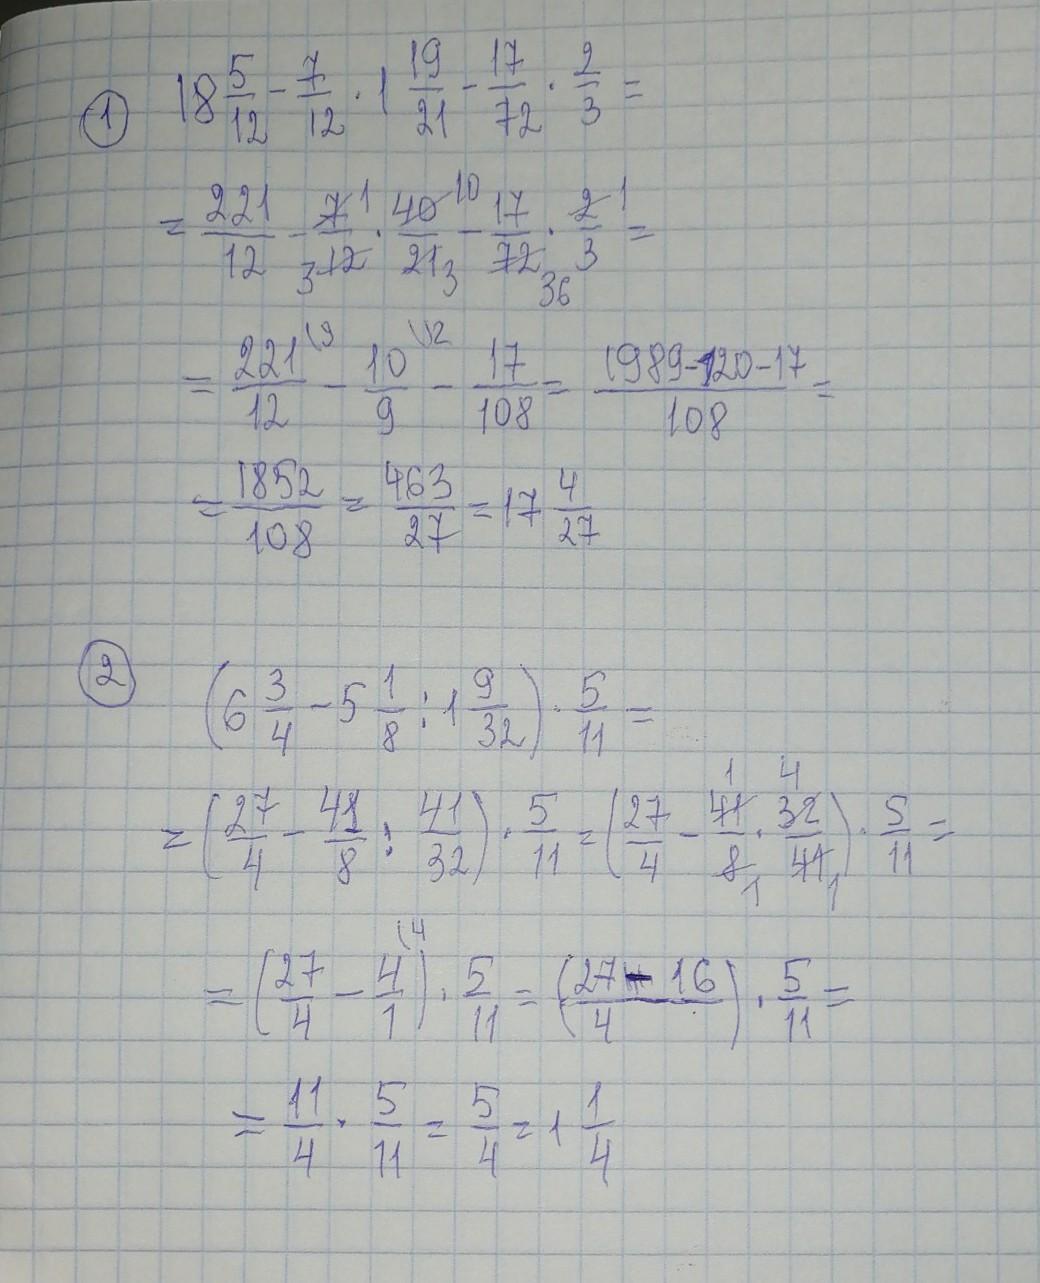 ① 18 5/12 - 7/12 · 1 19/21 - 17/72 · 2/3 =
= 221/12 - 7/12 · 40/21 - 17/72 · 2/3 =
= 221/12 - 10/9 - 17/108 = (1989-120-17)/108 =
= 1852/108 = 463/27 = 17 4/27
② (6 3/4 - 5 1/8 : 1 9/32) · 5/11 =
= (27/4 - 41/8 : 41/32) · 5/11 = (27/4 - 41/8 · 32/41) · 5/11 =
= (27/4 - 4/1) · 5/11 = ((27 - 16)/4) · 5/11 =
= 11/4 · 5/11 = 5/4 = 1 1/4